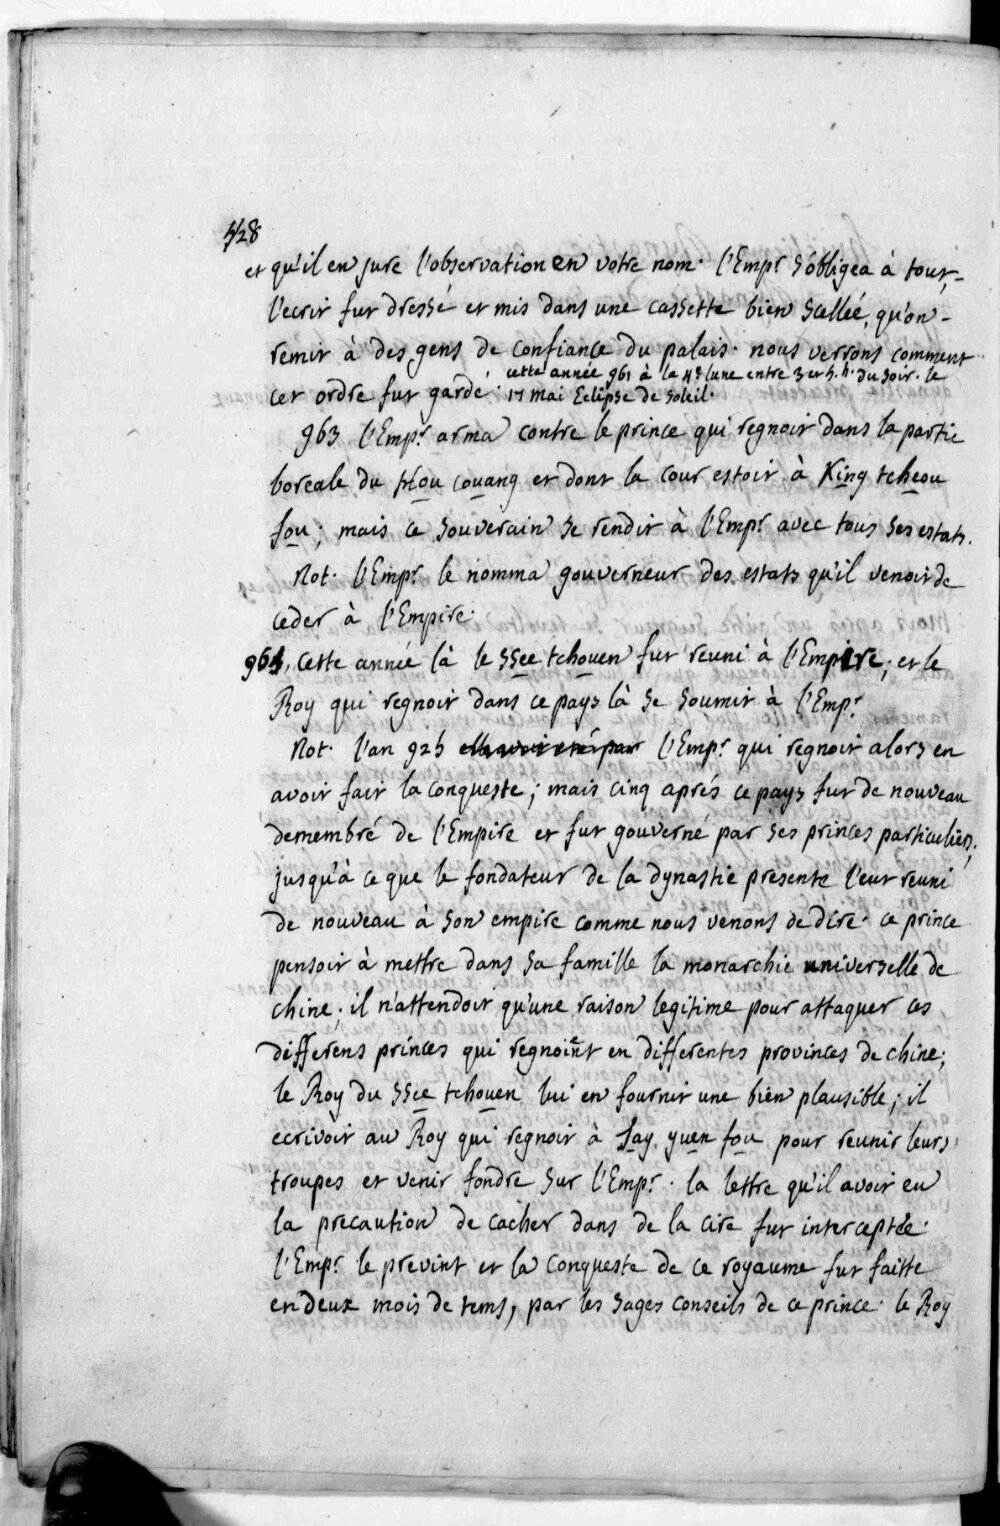 428
et qu'il en jure l'observation en votre nom. l'Emp.r s'obligea à tout,
l'ecrit fut dressé et mis dans une cassette bien scellée, qu'on
remit à des gens de confiance du palais. nous verrons comment
cette année 961 à la 4e lune entre 3 et 5. h. du soir. le
cet ordre fut gardé. 17 mai Eclipse de soleil.
963 l'Emp.r arma contre le prince qui regnoit dans la partie
boreale du Hou couang et dont la cour estoit à King tcheou
fou; mais ce souverain se rendit à l'Emp.r avec tous ses estats.
Not. l'Emp.r le nomma gouverneur des estats qu'il venoit de
ceder à l'Empire.
965, cette année là le ssee tchouen fut reuni à l'Empire; et le
Roy qui regnoit dans ce pays là se soumit à l'Emp.r
Not. l'an 925 l'Emp.r qui regnoit alors en
avoit fait la conqueste; mais cinq aprés ce pays fut de nouveau
demembré de l'Empire et fut gouverné par ses princes particuliers,
jusqu'à ce que le fondateur de la dynastie presente l'eut reuni
de nouveau à son empire comme nous venons de dire. ce prince
pensoit à mettre dans sa famille la monarchie universelle de
chine. il n'attendoit qu'une raison legitime pour attaquer ces
differens princes qui regnoint en differentes provinces de chine;
le Roy du ssee tchouen lui en fournit une bien plausible; il
ecrivoit au Roy qui regnoit à tay yuen fou pour reunir leurs
troupes et venir fondre sur l'Emp.r. la lettre qu'il avoit eu
la precaution de cacher dans de la cire fut interceptée.
l'Emp.r le prevint et la conqueste de ce royaume fut faitte
en deux mois de tems, par les sages conseils de ce prince. le Roy